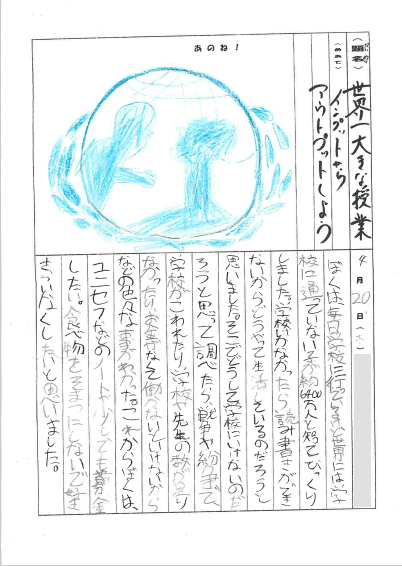 あのね！
（題名）だいめい
世界一大きな授業
（めあて）
インプットから
アウトプットしよう
4月20日（火）
ぼくは毎日学校に行っているが世界には学
校に通っていない子が約6400万人と知ってびっくり
しました。学校がなかったら読み書きができ
ないからどうやって生活しているのだろうと
思いました。そこでどうして学校にいけないのだ
ろうと思って調べたら戦争や紛争で、
学校がこわれたり学校や先生の数がたり
なかったりお金がなくて働かないといけないから
などの色々な事がわかった。これからぼくは、
ユニセフなどのノートや少しでも募金
したい。食べ物をそまつにしないで好き
きらいなくしたいと思いました。